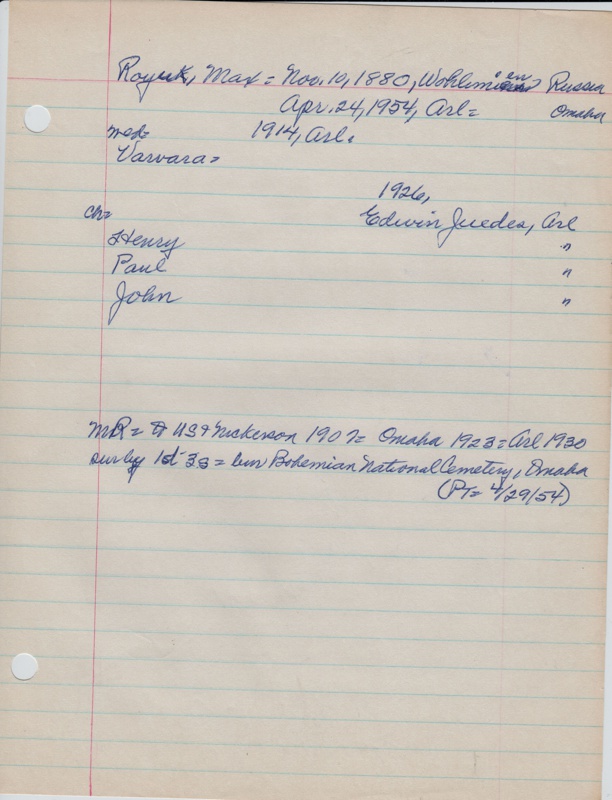 Royuk, Max = Nov. 10, 1880, Wohlinien Russia
Apr. 24, 1954, Arl = Omaha
med= 1914, Arl.
Varvara =
1926,
ch= Edwin Juedes, Arl
Henry "
Paul "
John "
MR = to US & Nickerson 1907 = Omaha 1923 = Arl 1930
sur by 1d 3s = bur Bohemian National Cemetery, Omaha
(PT= 4/29/54)